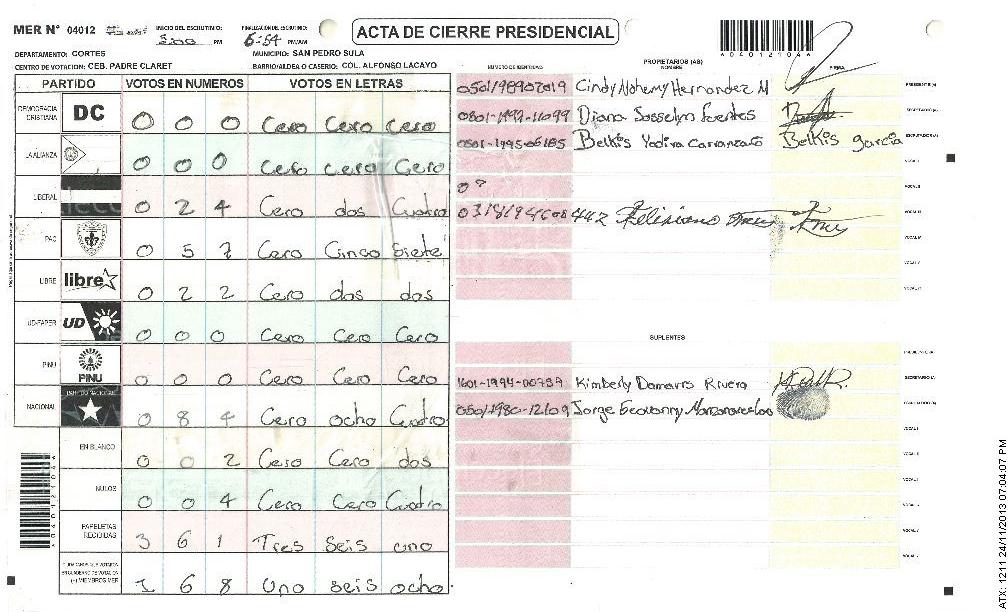 MER N° 04012 INICIO DEL ESCRUTINIO: 5:00 PM FINALIZACIÓN DEL ESCRUTINIO: 6:54 PM/AM
ACTA DE CIERRE PRESIDENCIAL
A040121044
DEPARTAMENTO: CORTES MUNICIPIO: SAN PEDRO SULA
CENTRO DE VOTACIÓN: CEB. PADRE CLARET BARRIO/ALDEA O CASERÍO: COL. ALFONSO LACAYO
PARTIDO VOTOS EN NUMEROS VOTOS EN LETRAS
DEMOCRACIA CRISTIANA DC 0 0 0 Cero Cero Cero
LA ALIANZA 0 0 0 Cero Cero Cero
LIBERAL 0 2 4 Cero dos Cuatro
PAC 0 5 7 Cero Cinco Siete
LIBRE libre 0 2 2 Cero dos dos
UD-FAPER UD 0 0 0 Cero Cero Cero
PINU PINU 0 0 0 Cero Cero Cero
NACIONAL 0 8 4 Cero ocho Cuatro
EN BLANCO 0 0 2 Cero Cero dos
NULOS 0 0 4 Cero Cero Cuatro
PAPELETAS RECIBIDAS 3 6 1 Tres Seis uno
1 6 8 Uno seis ocho
NUMERO DE IDENTIDAD PROPIETARIOS (AS) NOMBRE FIRMA
0501198902019 Cindy Hernandez M PRESIDENTE(A)
0801-1992-11099 Diana Josselyn fuentes SECRETARIO(A)
0501-1995-06185 Belkis Yadira Carranza Belkis garcia ESCRUTADOR(A)
VOCAL I
VOCAL II
VOCAL III
VOCAL IV
VOCAL V
SUPLENTES
PRESIDENTE(A)
1601-1994-00759 Kimberly Damaris Rivera SECRETARIO(A)
0501-1980-12109 Jorge Geovanny ESCRUTADOR(A)
VOCAL I
VOCAL II
ATX: 1211 24/11/2013 07:04:07 PM